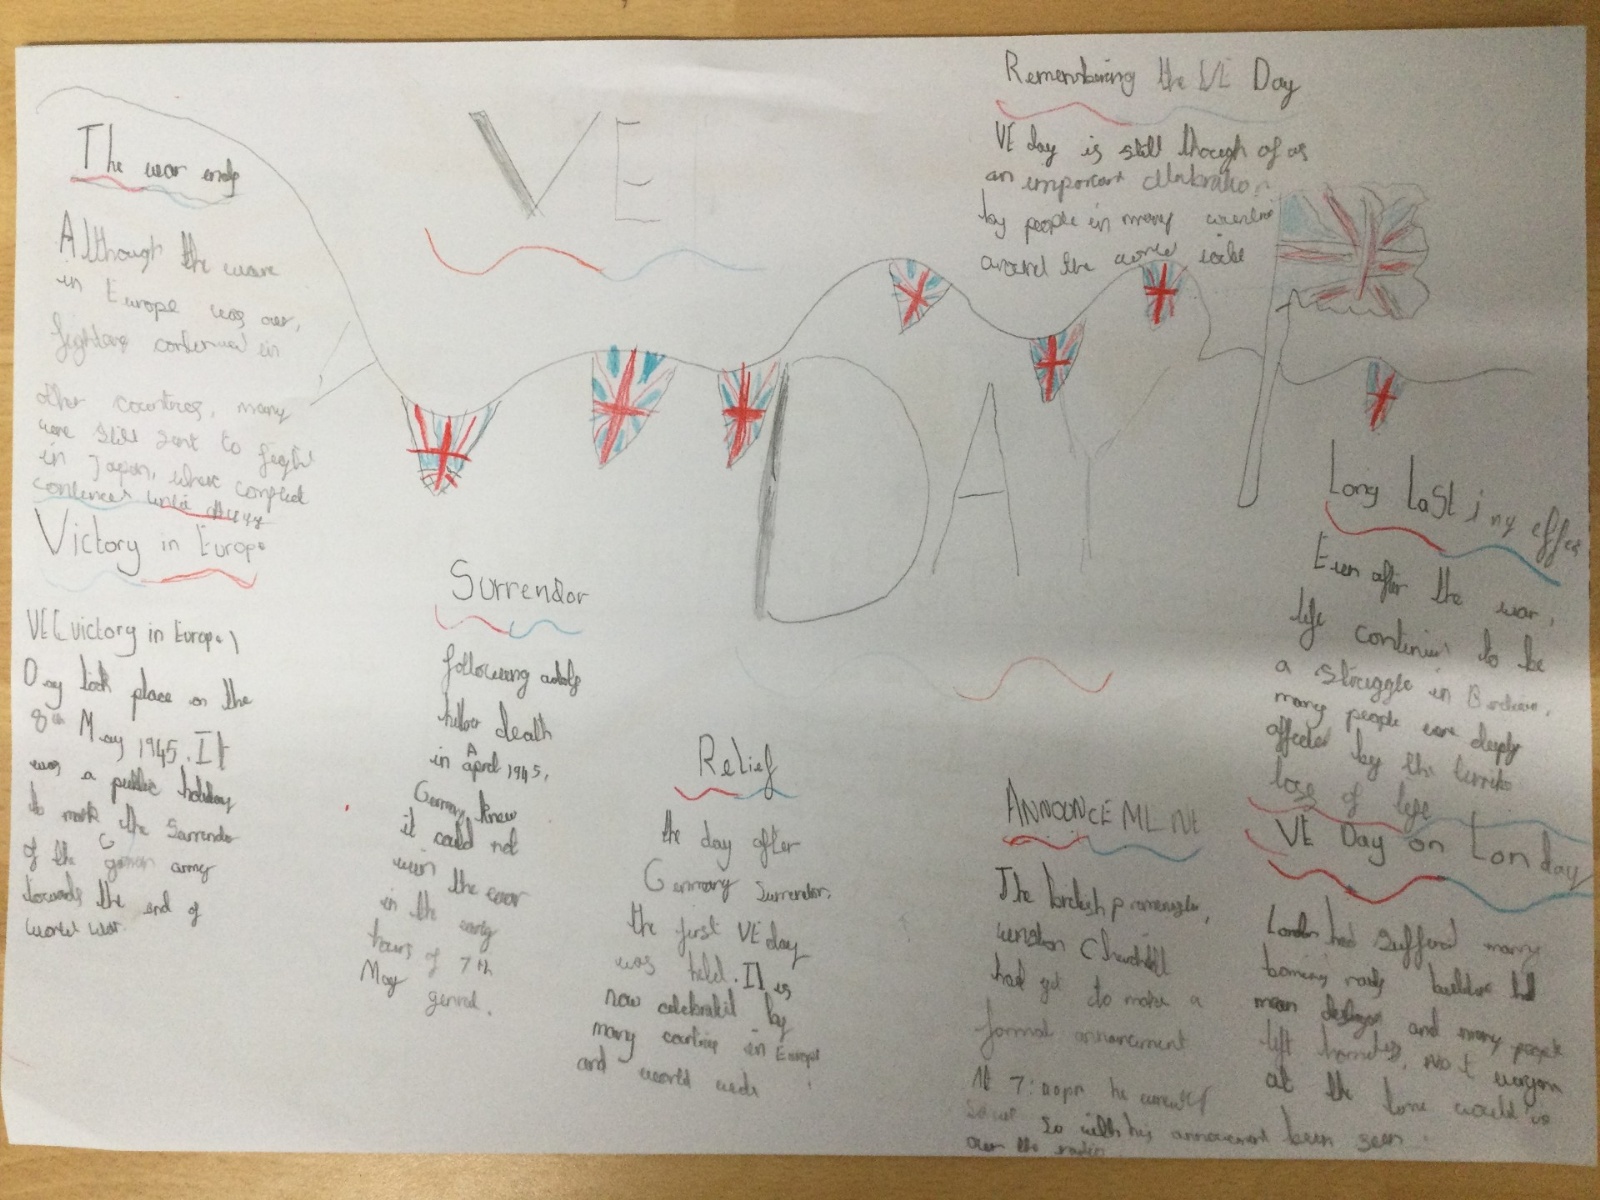 The war ends
Although the ware
in Europe was over,
fighting continued in
other countres, many
were still sent to fight
in Japan, where
until
Victory in Europe
VE (victory in Europe)
Day took place on the
8th May 1945. It
was a public holiday
to mark the Surrender
of the German army
towards the end of
world war.
VE
DAY
Surrendor
following adolf
hitler death
in April 1945,
Germany knew
it could not
win the war
in the early
hours of 7th
May
Relief
the day after
Germany Surrender,
the first VE day
was held. It is
now celebrated by
many in Europe
and world wide
Remembering the VE Day
VE day is still though of as
an important
by people in many
around the world
ANNOUNCEMENT
The
Churchill
had yet to make a
formal
At 7:00pm he
So with his
over the radio
Long Lasting effec
Even after the war,
life continui to be
a struggle in
many people were deeply
affected by the
loss of life
VE Day on Londay
London had suffered many
had
and many people
left
at the time would've
been seen